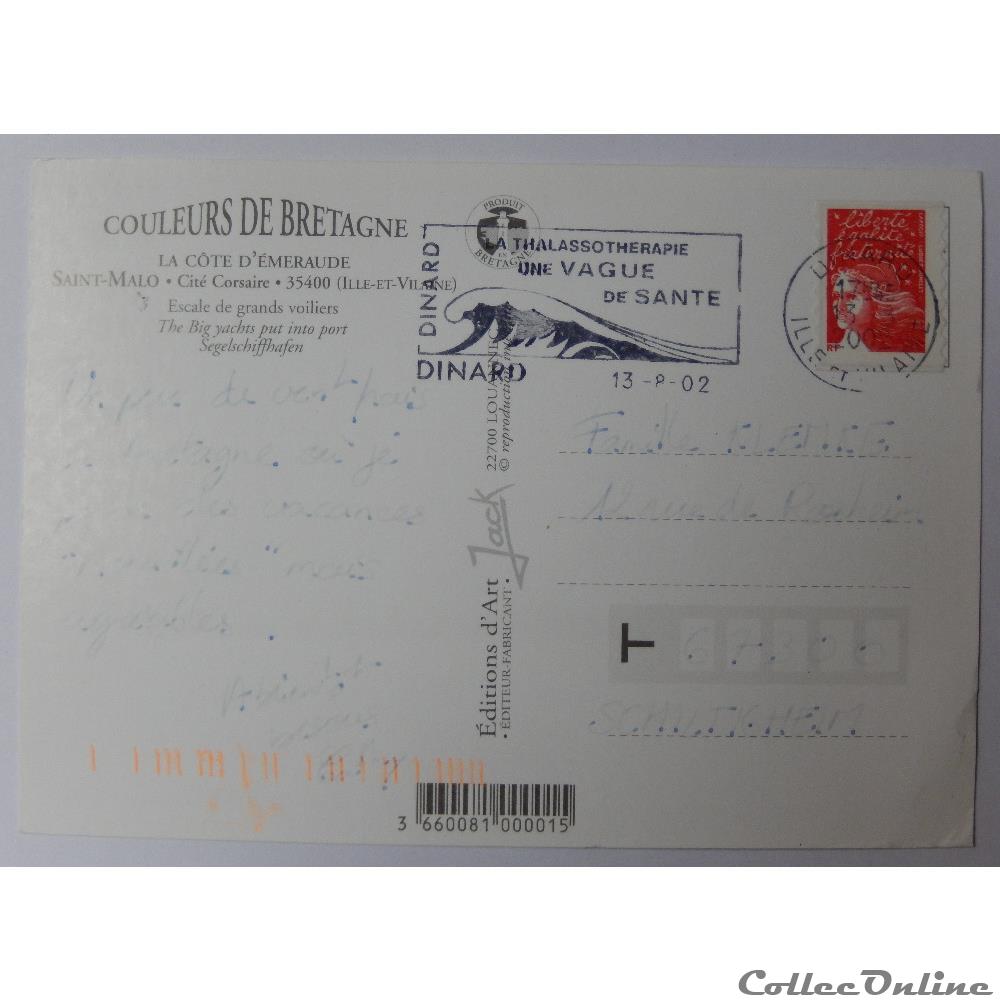 COULEURS DE BRETAGNE
LA CÔTE D'ÉMERAUDE
SAINT-MALO • Cité Corsaire • 35400 (ILLE-ET-VILAINE)
Escale de grands voiliers
The Big yachts put into port
Segelschiffhafen
PRODUIT
EN
BRETAGNE
DINARD
LA THALASSOTHERAPIE
UNE VAGUE
DE SANTE
DINARD
13-8-02
liberté
égalité
fraternité
RF
ILLE ET VILAINE
Un peu de vent
Bretagne où je
des vacances
mais
agréables
Famille
12 rue de Rosheim
T 67300
SCHILTIGHEIM
Éditions d'Art Jack
• ÉDITEUR-FABRICANT •
22700 LOUANNEC
© reproduction
3 660081 000015
CollecOnline